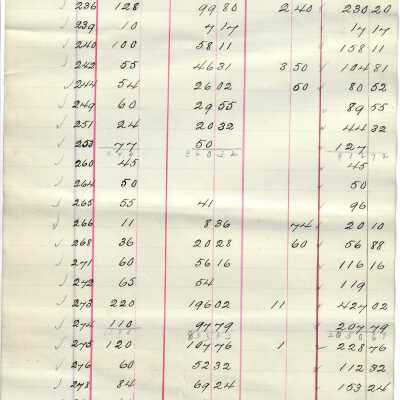 236 128 99 80 2 40 230 20
239 10 7 17 17 17
240 100 58 11 158 11
242 55 46 31 3 50 104 81
244 54 26 02 50 80 52
249 60 29 55 89 55
251 24 20 32 44 32
253 77 50 127
260 45 45
264 50 50
265 55 41 96
266 11 8 36 74 20 10
268 36 20 28 60 56 88
271 60 56 16 116 16
272 65 54 119
273 220 196 02 11 427 02
274 110 97 79 207 79
275 120 107 76 1 228 76
276 60 52 32 112 32
278 84 69 24 153 24